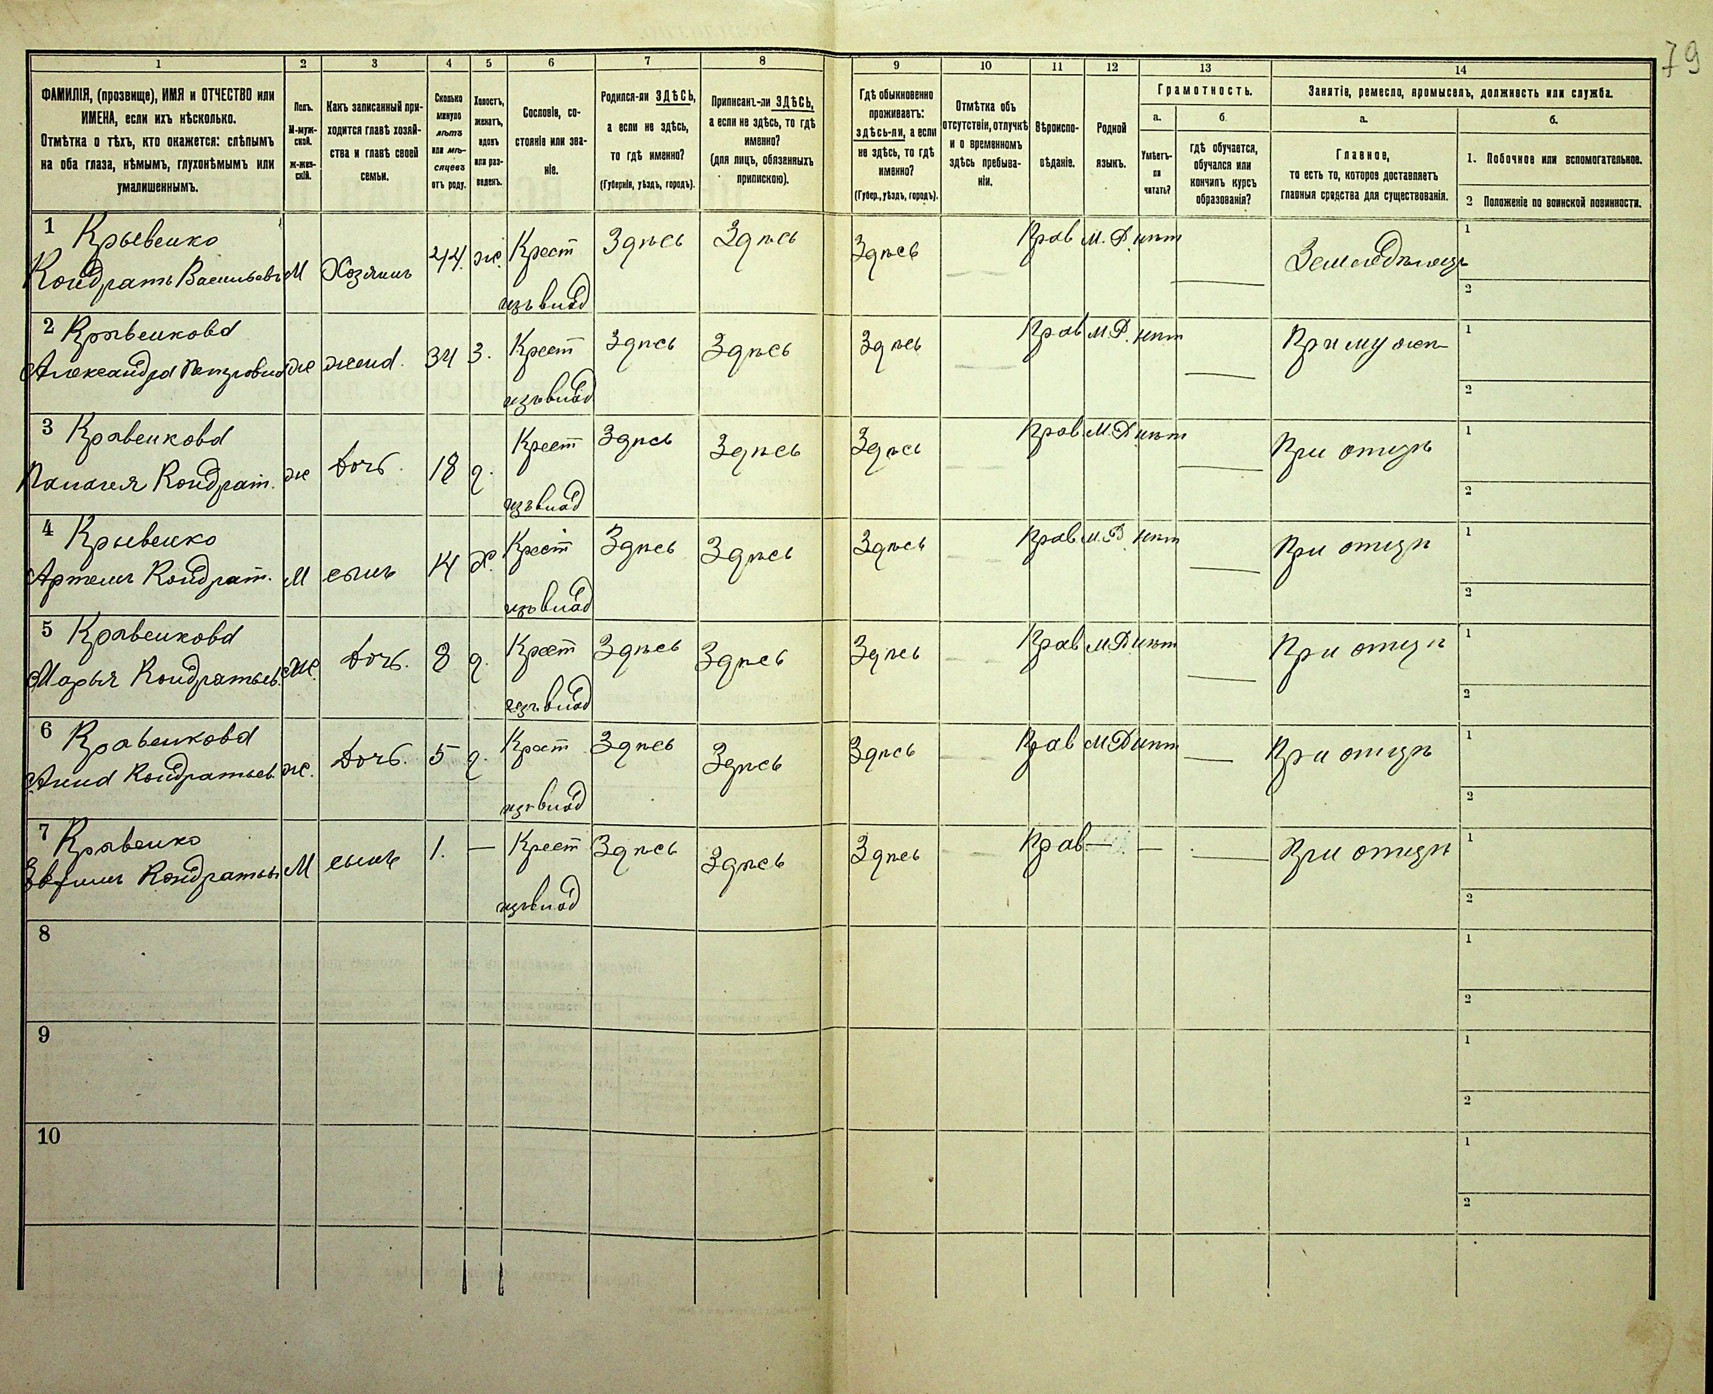 79
1 2 3 4 5 6 7 8 9 10 11 12 13 14
ФАМИЛІЯ, (прозвище), ИМЯ и ОТЧЕСТВО или
ИМЕНА, если ихъ нѣсколько.
Отмѣтка о тѣхъ, кто окажется: слѣпымъ
на оба глаза, нѣмымъ, глухонѣмымъ или
умалишеннымъ.
Полъ.
М-муж-
ской.
Ж-жен-
скій.
Какъ записанный при-
ходится главѣ хозяй-
ства и главѣ своей
семьи.
Сколько
минуло
лѣтъ
или мѣ-
сяцевъ
отъ роду.
Холостъ,
женатъ,
вдовъ
или раз-
веденъ.
Сословіе, со-
стояніе или зва-
ніе.
Родился-ли ЗДѢСЬ,
а если не здѣсь,
то гдѣ именно?
(Губернія, уѣздъ, городъ).
Приписанъ-ли ЗДѢСЬ,
а если не здѣсь, то гдѣ
именно?
(для лицъ, обязанныхъ
припискою).
Гдѣ обыкновенно
проживаетъ:
здѣсь-ли, а если
не здѣсь, то гдѣ
именно?
(Губер., уѣздъ, городъ).
Отмѣтка объ
отсутствіи, отлучкѣ
и о временномъ
здѣсь пребыва-
ніи.
Вѣроиспо-
вѣданіе.
Родной
языкъ.
Грамотность.
а. б.
Умѣетъ-
ли
читать?
гдѣ обучается,
обучался или
кончилъ курсъ
образованія?
Занятіе, ремесло, промыселъ, должность или служба.
а. б.
Главное,
то есть то, которое доставляетъ
главныя средства для существованія.
1. Побочное или вспомогательное.
2 Положеніе по воинской повинности.
1 Крывенко Крест Здѣсь Здѣсь Здѣсь Прав М.Р. нѣт Земледѣлецъ 1
Кондратъ Васильевъ М Хозяинъ 44 ж. 2
2 Кравенкова Крест Здѣсь Здѣсь Здѣсь Прав М.Р. нѣт При мужѣ 1
Александра Петровна ж жена. 34 З. 2
3 Кравенкова Крест Здѣсь Здѣсь Здѣсь Прав М.Р нѣт При отцѣ 1
Палагея Кондрат. ж Дочь. 18 д. 2
4 Крывенко Крест Здѣсь Здѣсь Здѣсь Прав М.Р нѣт При отцѣ 1
Артемъ Кондрат. М сынъ 14 Х. 2
5 Кравенкова Крест Здѣсь Здѣсь Здѣсь Прав М.Р нѣт При отцѣ 1
Марья Кондратьев. Ж. Дочь. 8 д. 2
6 Кравенкова Крест Здѣсь Здѣсь Здѣсь Прав М.Р нѣт При отцѣ 1
Анна Кондратьев. ж. Дочь. 5 д. 2
7 Кравенко Крест Здѣсь Здѣсь Здѣсь Прав — — — При отцѣ 1
Евфимъ Кондратьев М сынъ 1. — 2
8 1
2
9 1
2
10 1
2